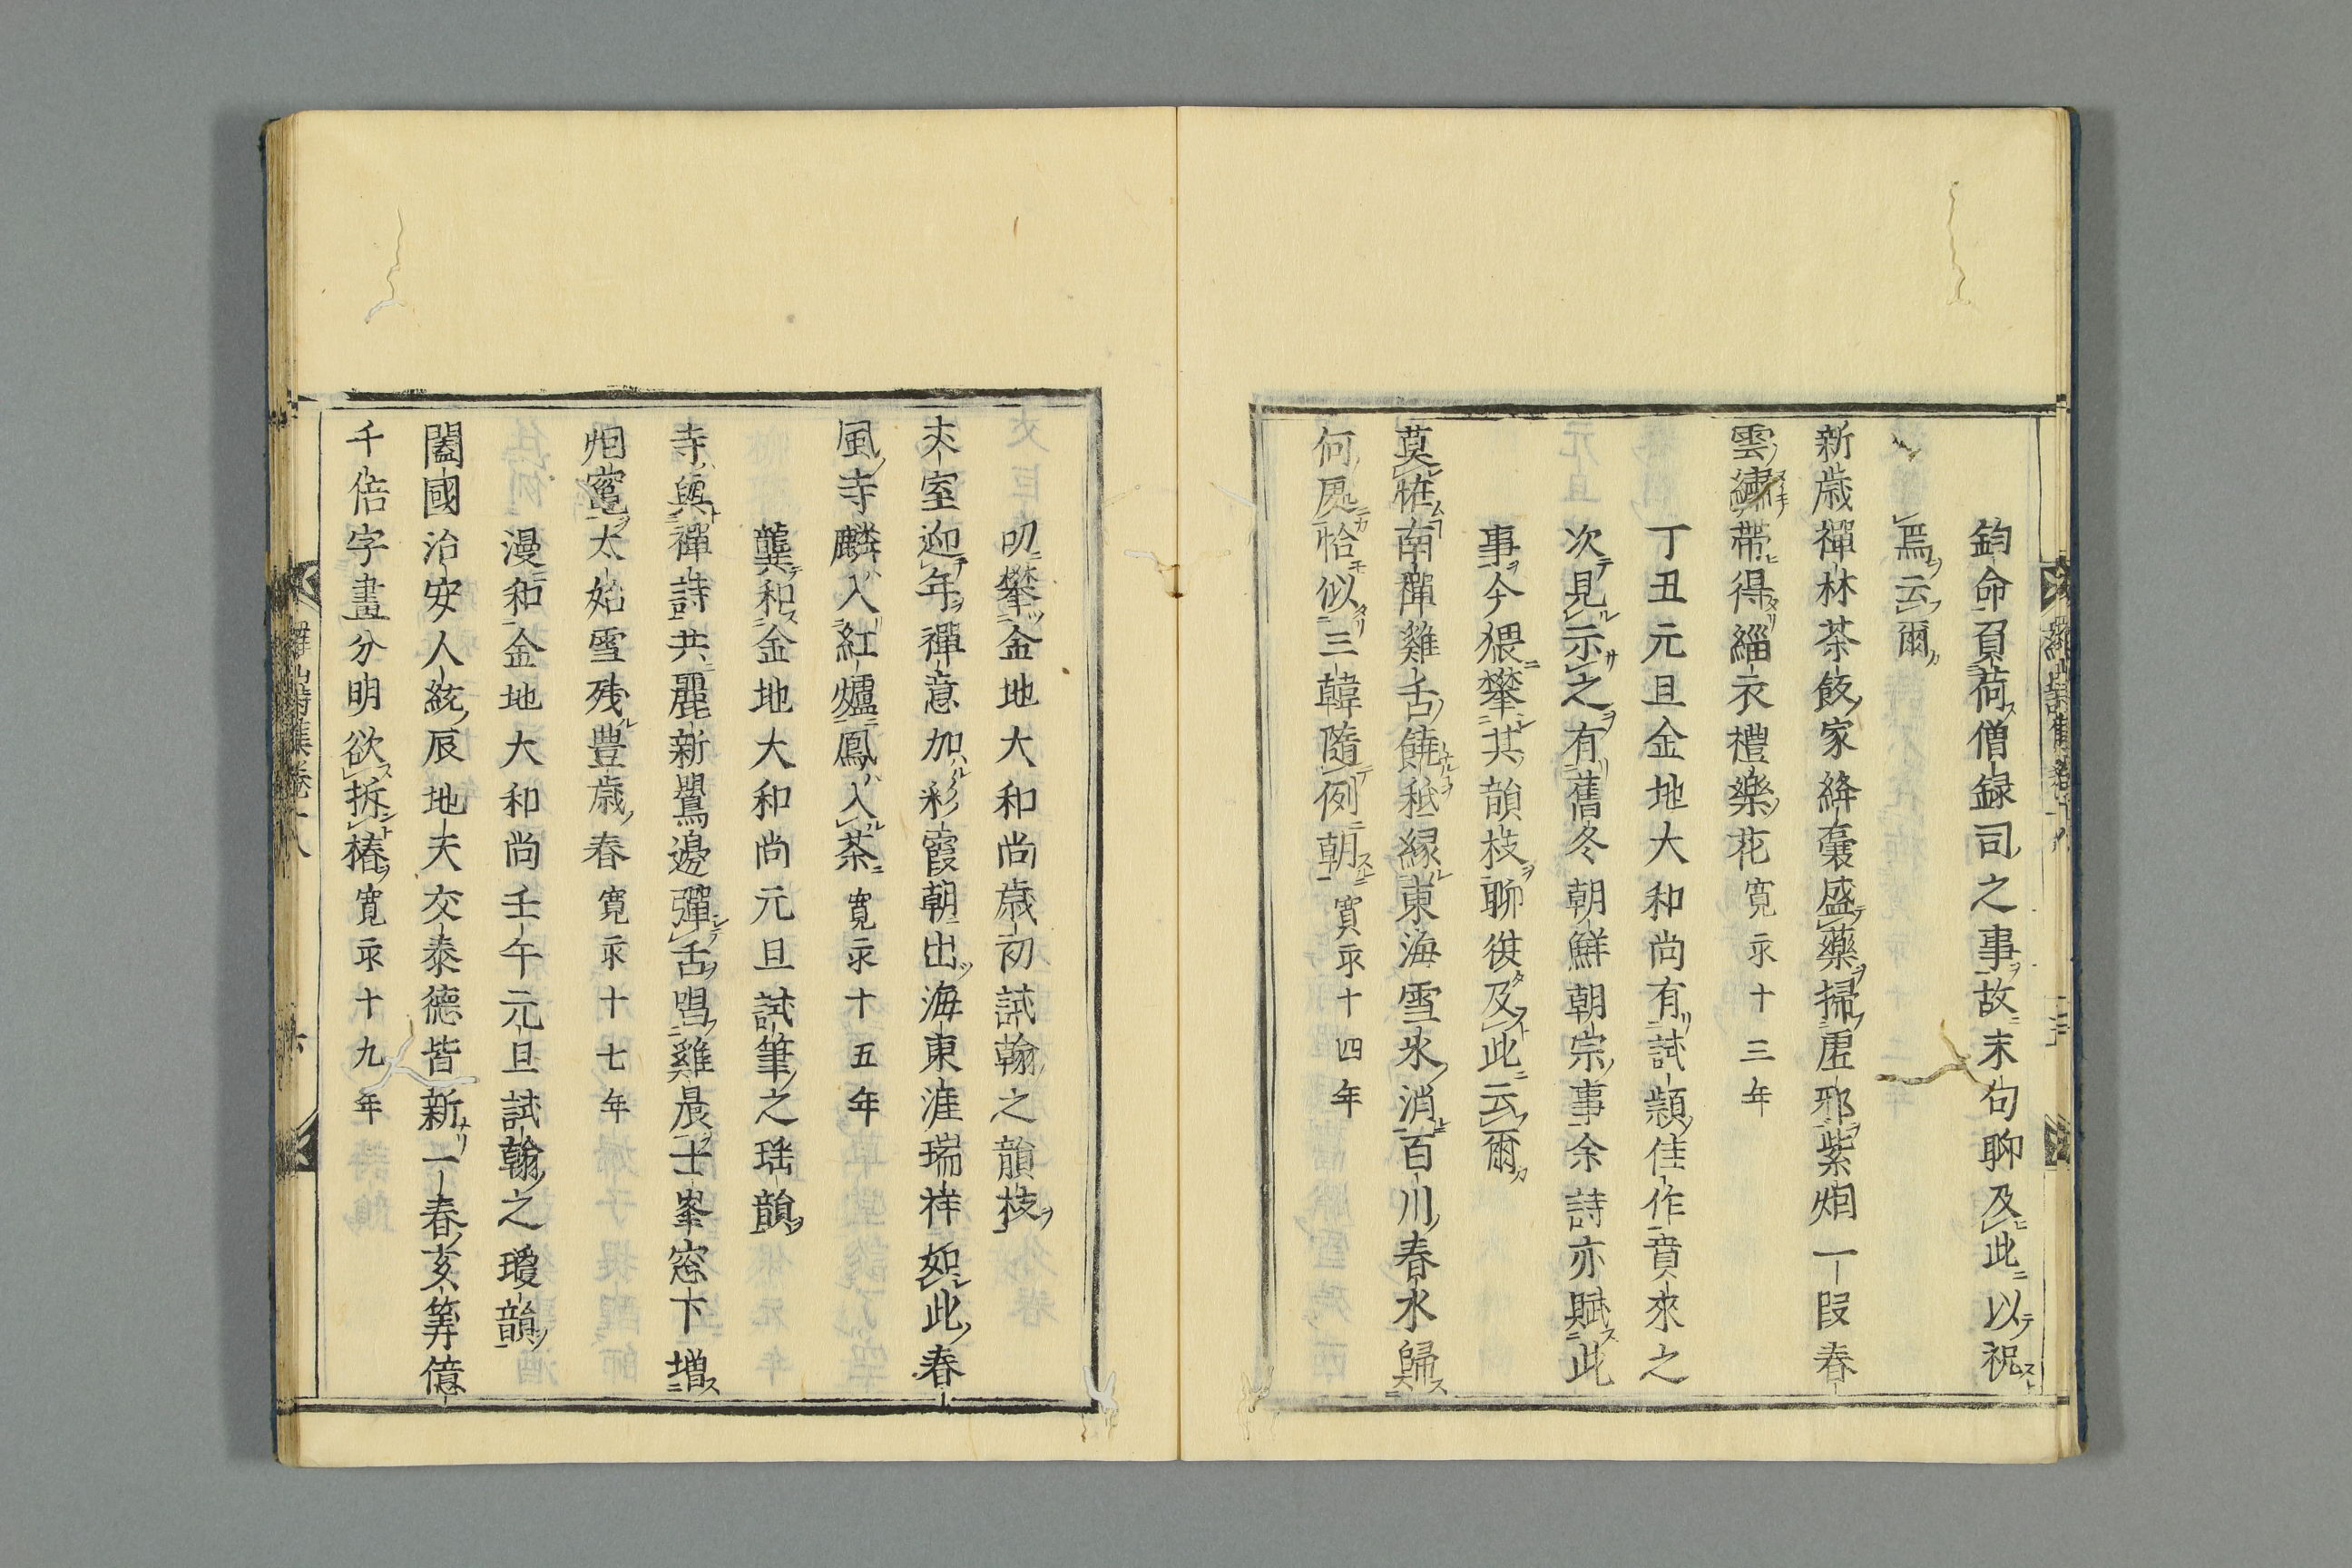 鈞命負荷僧録司之事故末句聊及此以祝
焉云爾
新歳禪林茶飯家絳囊盛藥掃虛邪紫烟一段春
雲繡帶得緇衣禮樂花寛永十三年
丁丑元旦金地大和尚有試頴佳作賁來之
次見示之有舊冬朝鮮朝宗事余詩亦賦此
事今猥攀其韻枝聊供及此云爾
莫恠南禪雞舌饒秪縁東海雪氷消百川春水歸
何処恰似三韓隨例朝寛永十四年
叨攀金地大和尚歳初試翰之韻枝
丈室迎年禪意加彩霞朝出海東涯瑞祥如此春
風寺麟入紅爐鳳入茶寛永十五年
龔和金地大和尚元旦試筆之瑶韻
寺與禪詩共麗新鸎邊彈舌唱雞晨士峯窓下增
烟竈太始雪残豊歳春寛永十七年
漫和金地大和尚壬午元旦試翰之瓊韻
闔國治安人統辰地夫交泰德皆新一春亥筭億
千倍字畫分明欲拆椿寛永十九年